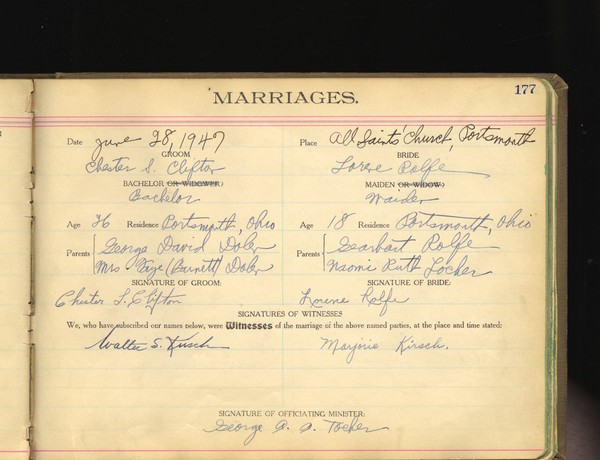 177
MARRIAGES.
Date June 28, 1947 Place All Saints' Church, Portsmouth
GROOM BRIDE
Chester S. Clifton Lorene Rolfe
BACHELOR OR WIDOWER: MAIDEN OR WIDOW:
Bachelor Maiden
Age 26 Residence Portsmouth, Ohio Age 18 Residence Portsmouth, Ohio
Parents George David Doler Parents Gearhart Rolfe
Mrs Faye (Burnett) Doler Naomi Ruth Locher
SIGNATURE OF GROOM: SIGNATURE OF BRIDE:
Chester S. Clifton Lorene Rolfe
SIGNATURES OF WITNESSES
We, who have subscribed our names below, were Witnesses of the marriage of the above named parties, at the place and time stated:
Walter S. Kirsch Marjorie Kirsch.
SIGNATURE OF OFFICIATING MINISTER:
George